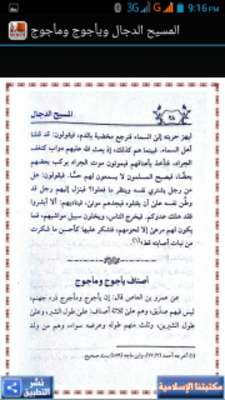 3G 9:16 PM
المسيح الدجال ويأجوج ومأجوج
المسيح الدجال
٢٨
ليهز حربته إلى السماء، فترجع مخضبة بالدم، فيقولون: قد قتلنا
أهل السماء. فبينما هم كذلك؛ إذ بعث الله عليهم دواب كنغف
الجراد، فتأخذ بأعناقهم فيموتون موت الجراد يركب بعضهم
بعضًا، فيصبح المسلمون لا يسمعون لهم حسًّا. فيقولون: هل
من رجل يشتري نفسه وينظر ما فعلوا؟ فينزل إليهم رجل قد
وطن نفسه على أن يقتلوه، فيجدهم موتى، فيناديهم: ألا أبشروا
فقد هلك عدوكم. فيخرج الناس، ويخلون سبيل مواشيهم، فما
يكون لهم مرعى إلا لحومهم، فتشكر عليها كأحسن ما شكرت
من نبات أصابته قط(١)
أصناف يأجوج ومأجوج
عن عمرو بن العاص قال: إن يأجوج ومأجوج ذرء جهنم،
ليس فيهم صديق، وهم على ثلاثة أصناف: على طول الشبر، وعلى
طول الشبرين، وثلث منهم طوله وعرضه سواء، وهم من ولد
(١) أخرجه أحمد
نشر التطبيق
مكتبتنا الإسلامية